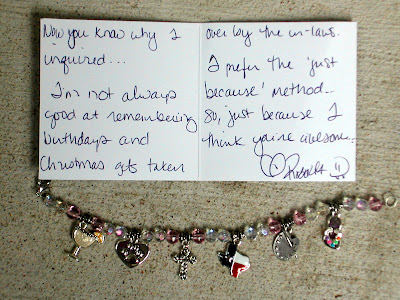 Now you know why I
inquired...
I'm not always
good at remembering
birthdays and
Christmas gets taken
over by the in-laws.
I prefer the 'just
because' method..
So, just because I
think you're awesome.